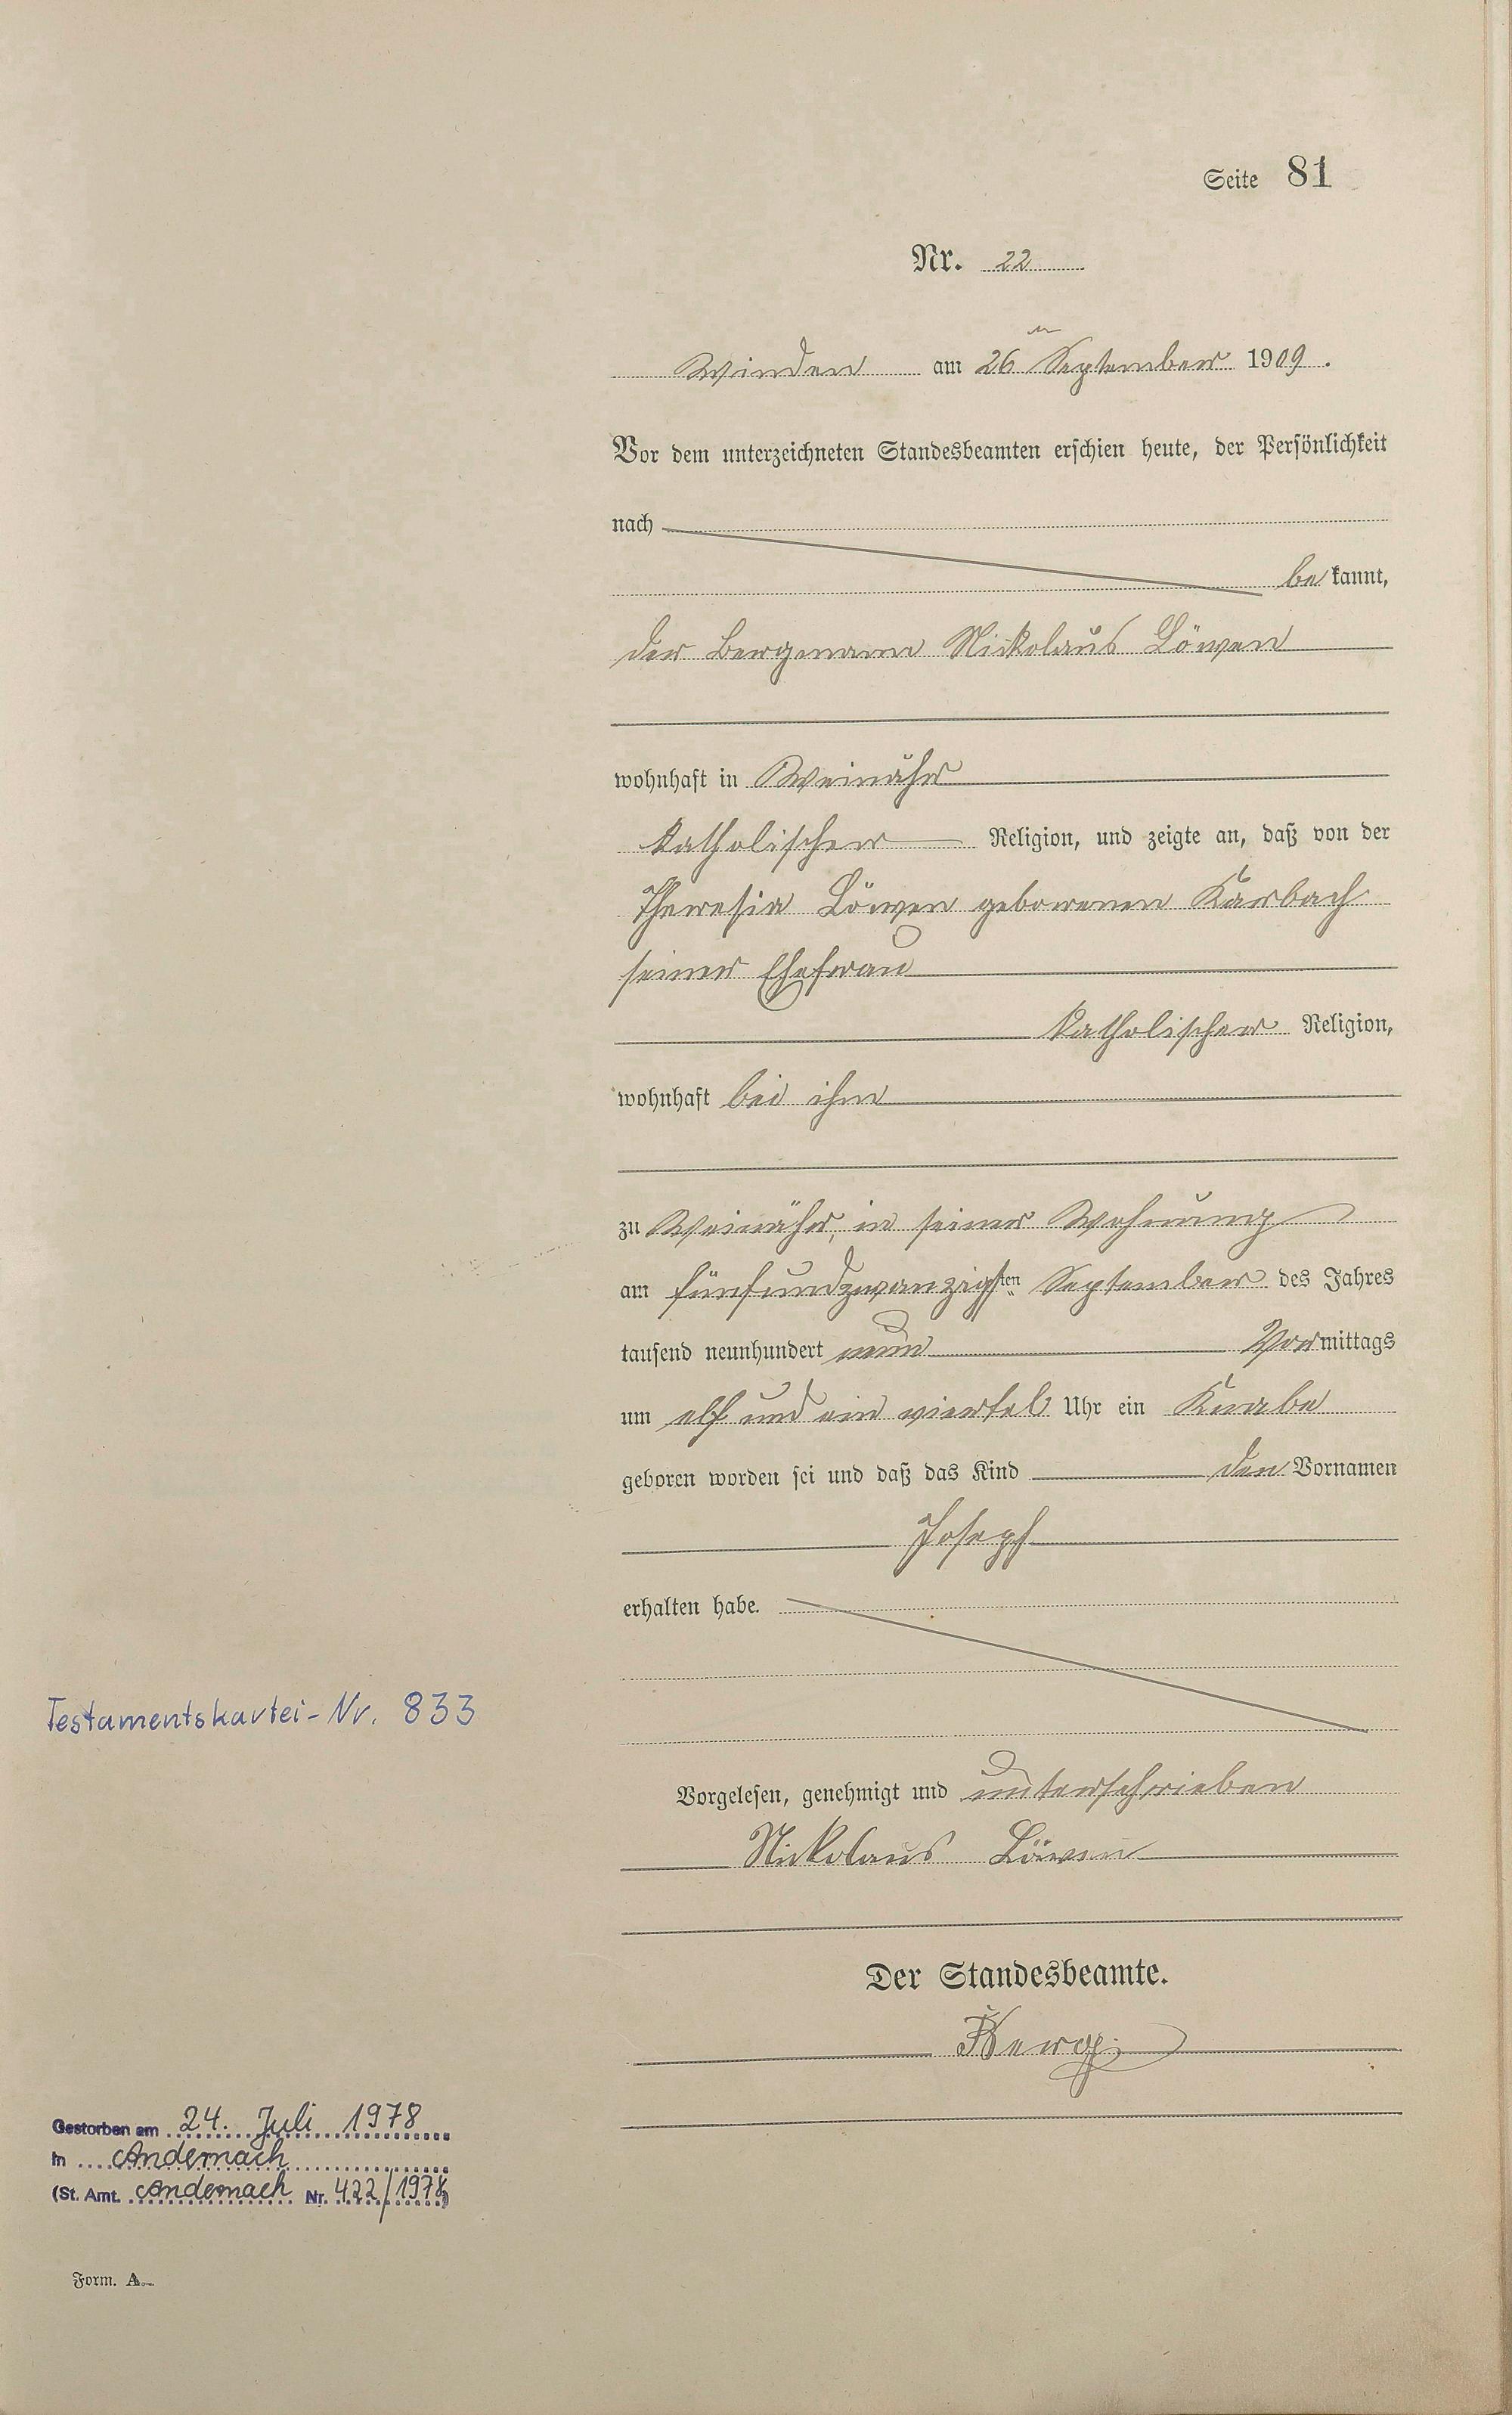 Seite 81
Nr. 22
Winden am 26ten September 1909.
Vor dem unterzeichneten Standesbeamten erschien heute, der Persönlichkeit
nach
bekannt,
der Bergmann Nickolaus Löwen
wohnhaft in Weinähr
katholischer Religion, und zeigte an, daß von der
Theresia Löwen geborenen Karbach
seiner Ehefrau
katholischer Religion,
wohnhaft bei ihm
zu Weinähr, in seiner Wohnung
am fünfundzwanzigsten September des Jahres
tausend neunhundert neun Vormittags
um elf und ein viertel Uhr ein Knabe
geboren worden sei und daß das Kind den Vornamen
Joseph
erhalten habe.
Testamentskartei-Nr. 833
Vorgelesen, genehmigt und unterschrieben
Nickolaus Löwen
Der Standesbeamte.
Gestorben am 24. Juli 1978
in Andernach
(St. Amt. Andernach Nr. 422/1978)
Form. A.